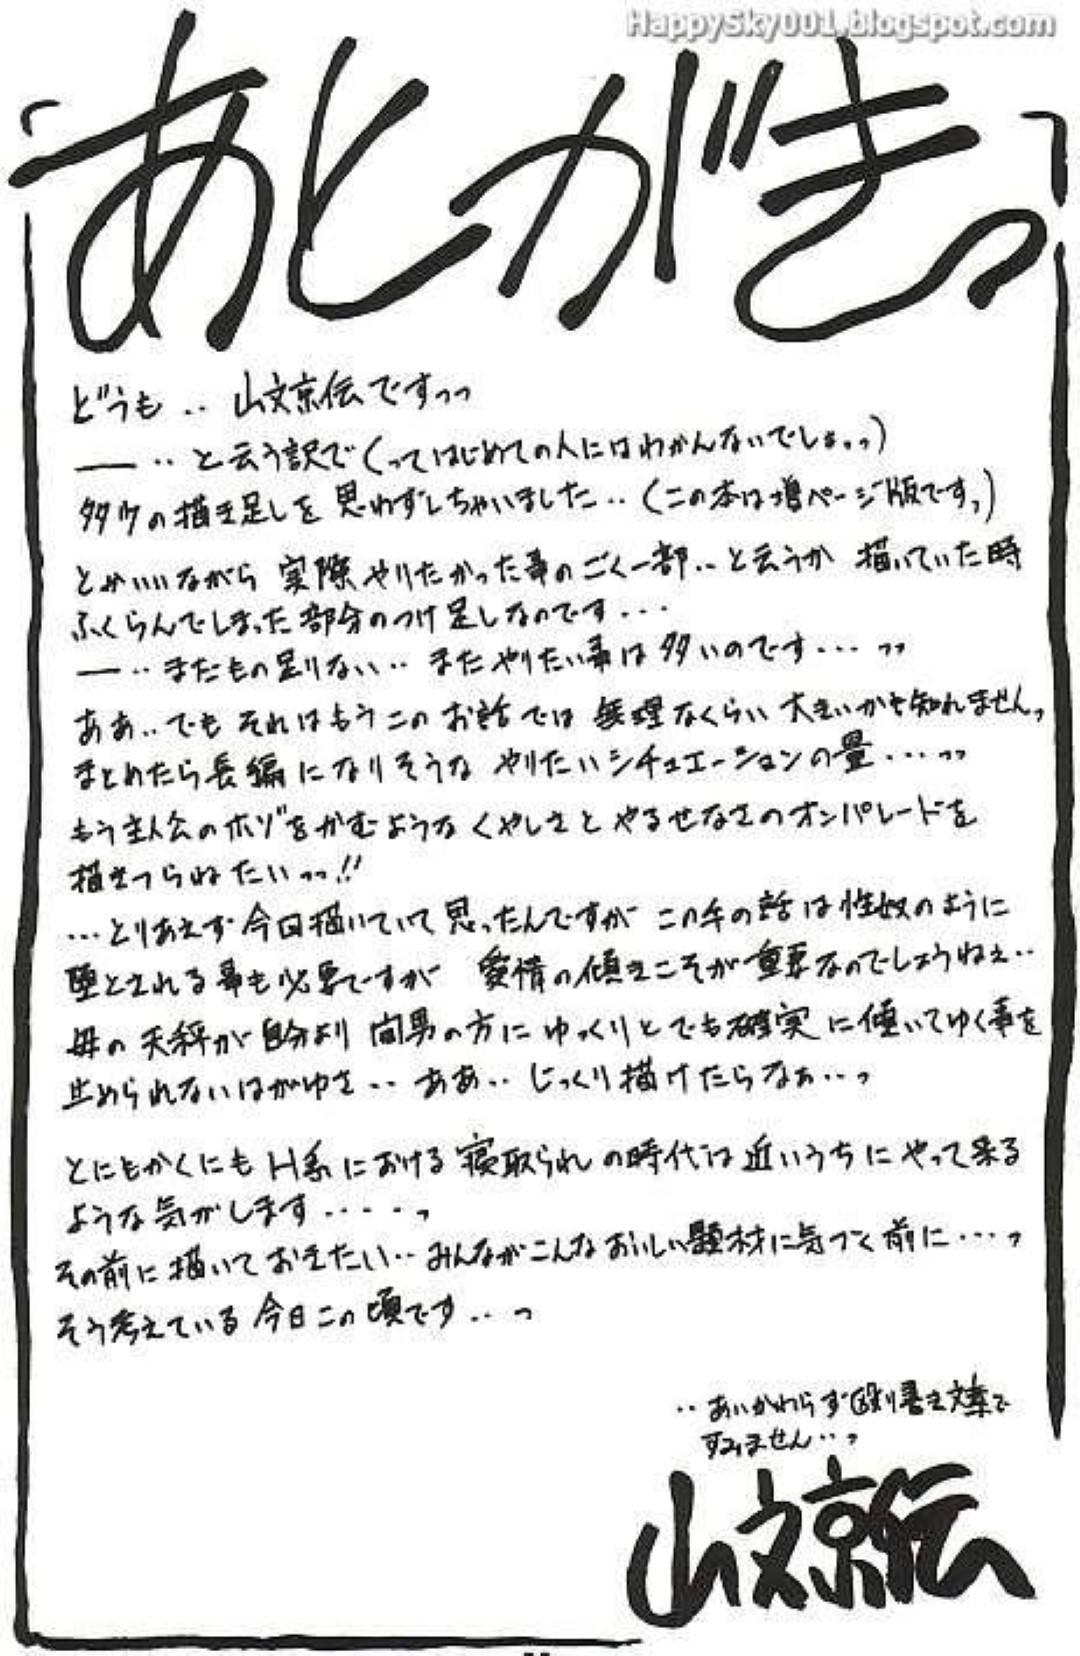 HappySky001.blogspot.com
あとがきっ
どうも‥山文京伝ですっっ
―‥と云う訳で(ってはじめての人にはわかんないでしょぉっ)
タタウの描き足しを思わずしちゃいました‥(この本は増ページ版ですっ)
とかいいながら 実際やりたかった事のごく一部‥と云うか 描いていた時
ふくらんでしまった部分のつけ足しなのです・・・
―‥まだもの足りない‥まだやりたい事は多いのです・・・っっ
ああ‥でも それはもうこのお話では 無理なくらい 大きいかも知れませんっ
まとめたら長編になりそうな やりたいシチュエーションの量・・・っっ
もう主人公のホゾをかむような くやしさと やるせなさのオンパレードを
描きつらねたいっっ!!
・・・とりあえず今回描いていて思ったんですが この手の話は性奴のように
堕とされる事も必要ですが 愛情の傾きこそが重要なのでしょうねぇ‥
母の天秤が自分より 間男の方に ゆっくりとでも確実に傾いてゆく事を
止められないはがゆさ‥ああ‥じっくり描けたらなぁ‥っ
とにもかくにもH系における寝取られの時代は近いうちにやって来る
ような気がします・・・・っ
その前に描いておきたい‥みんながこんなおいしい題材に気づく前に・・・っ
そう考えている今日この頃です‥っ
‥あいかわらず殴り書き文章で
すみません‥っ
山文京伝